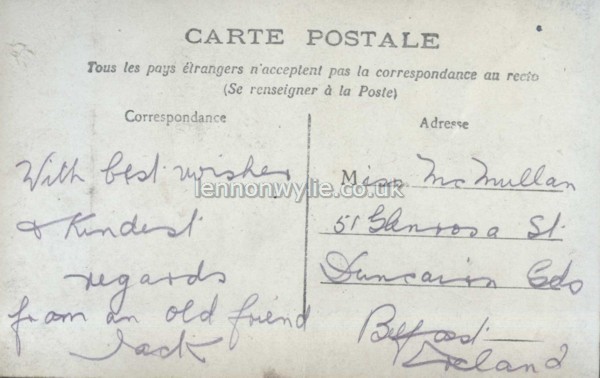 CARTE POSTALE
Tous les pays étrangers n'acceptent pas la correspondance au recto
(Se renseigner à la Poste)
Correspondance
With best wishes
& Kindest
regards
from an old friend
Jack
Adresse
Miss McMullan
51 Glenrosa St
Duncairn Gds
Belfast
Ireland
lennonwylie.co.uk